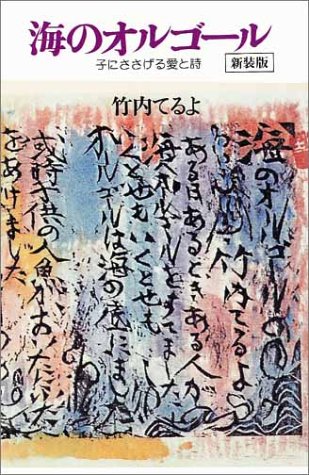 海のオルゴール
子にささげる愛と詩
新装版
竹内てるよ
海のオルゴール
竹内てるよ
あるはあるときある人が
海へオルゴールをすてました
いくともいくとも
オルゴールは海の底にまし
た
或時子供の人魚がおいたった
をあけました